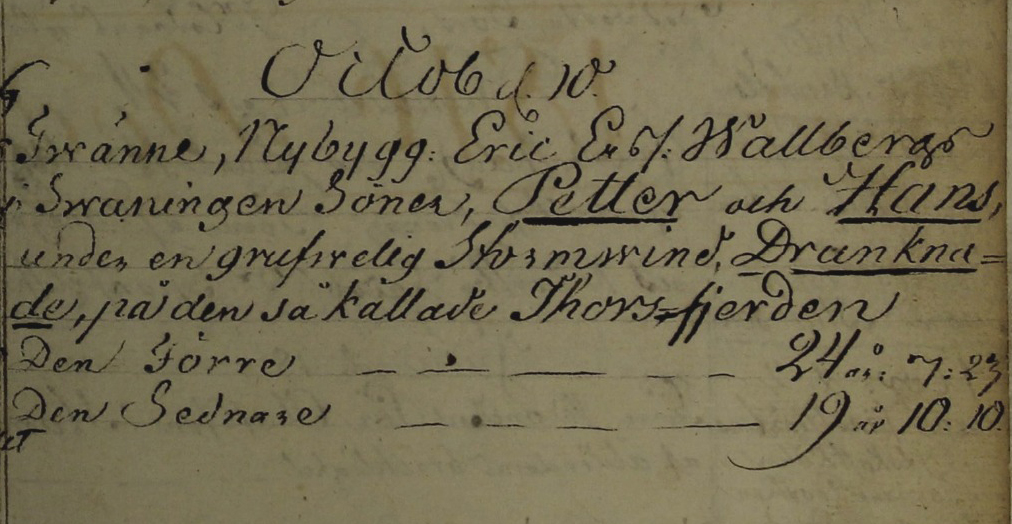 Octob d. 10.
Twänne, Nybygg: Eric Ers/: Wallbergs
i Swaningen Söner, Petter och Hans,
under en grufwelig Stormwind, Drunkna=
de, på den så kallade Thors=fjerden
Den Förre — — — — — 24 år: 7: 23
Den Sednare — — — — 19 år 10: 10.